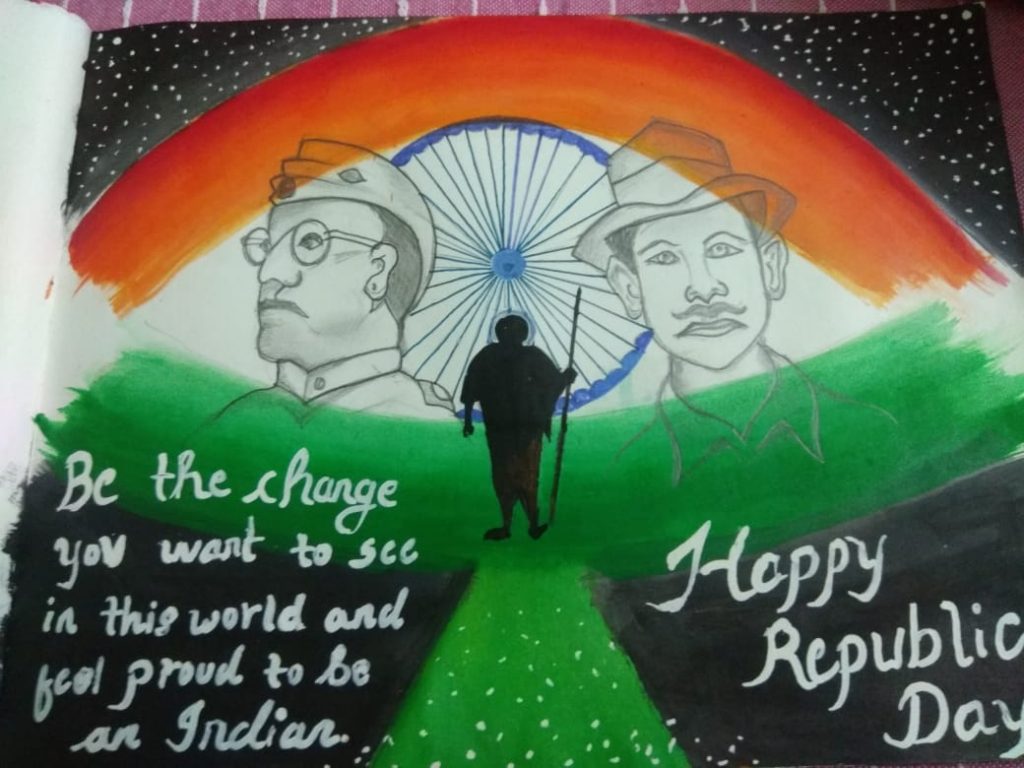 Be the change
you want to see
in this world and
feel proud to be
an Indian.
Happy
Republic
Day